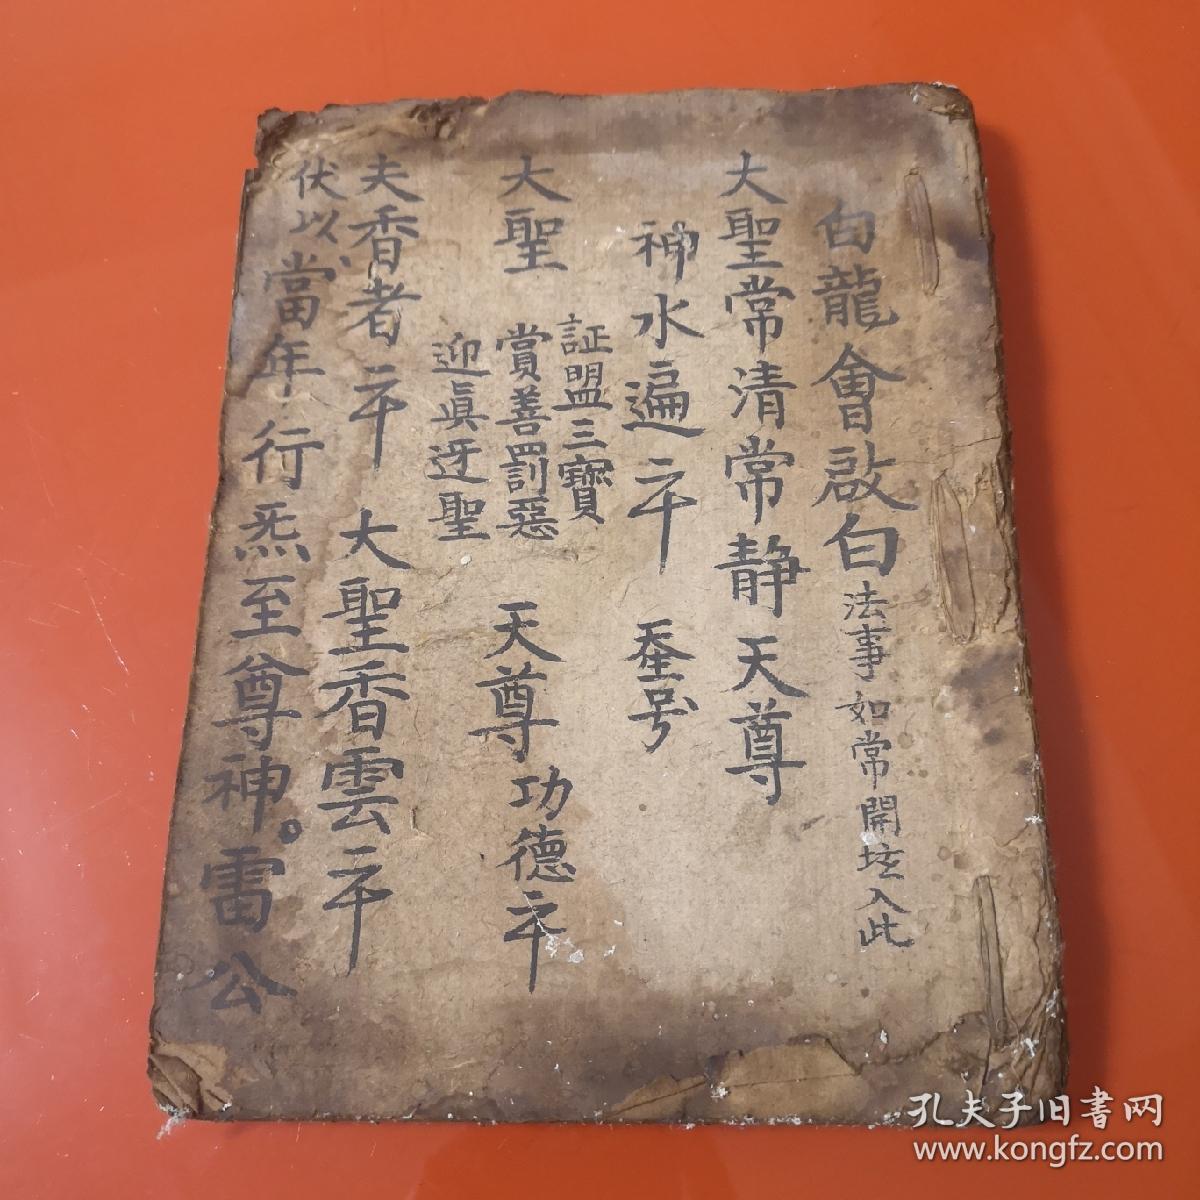 白龍會啟白法事如常開坛入此
大聖常清常静天尊
神水遍 号
証盟三寶
大聖 賞善罰惡 天尊功德
迎真迓聖
夫香者 大聖香雲
伏以、當年行炁至尊神。雷公
孔夫子旧書网
www.kongfz.com